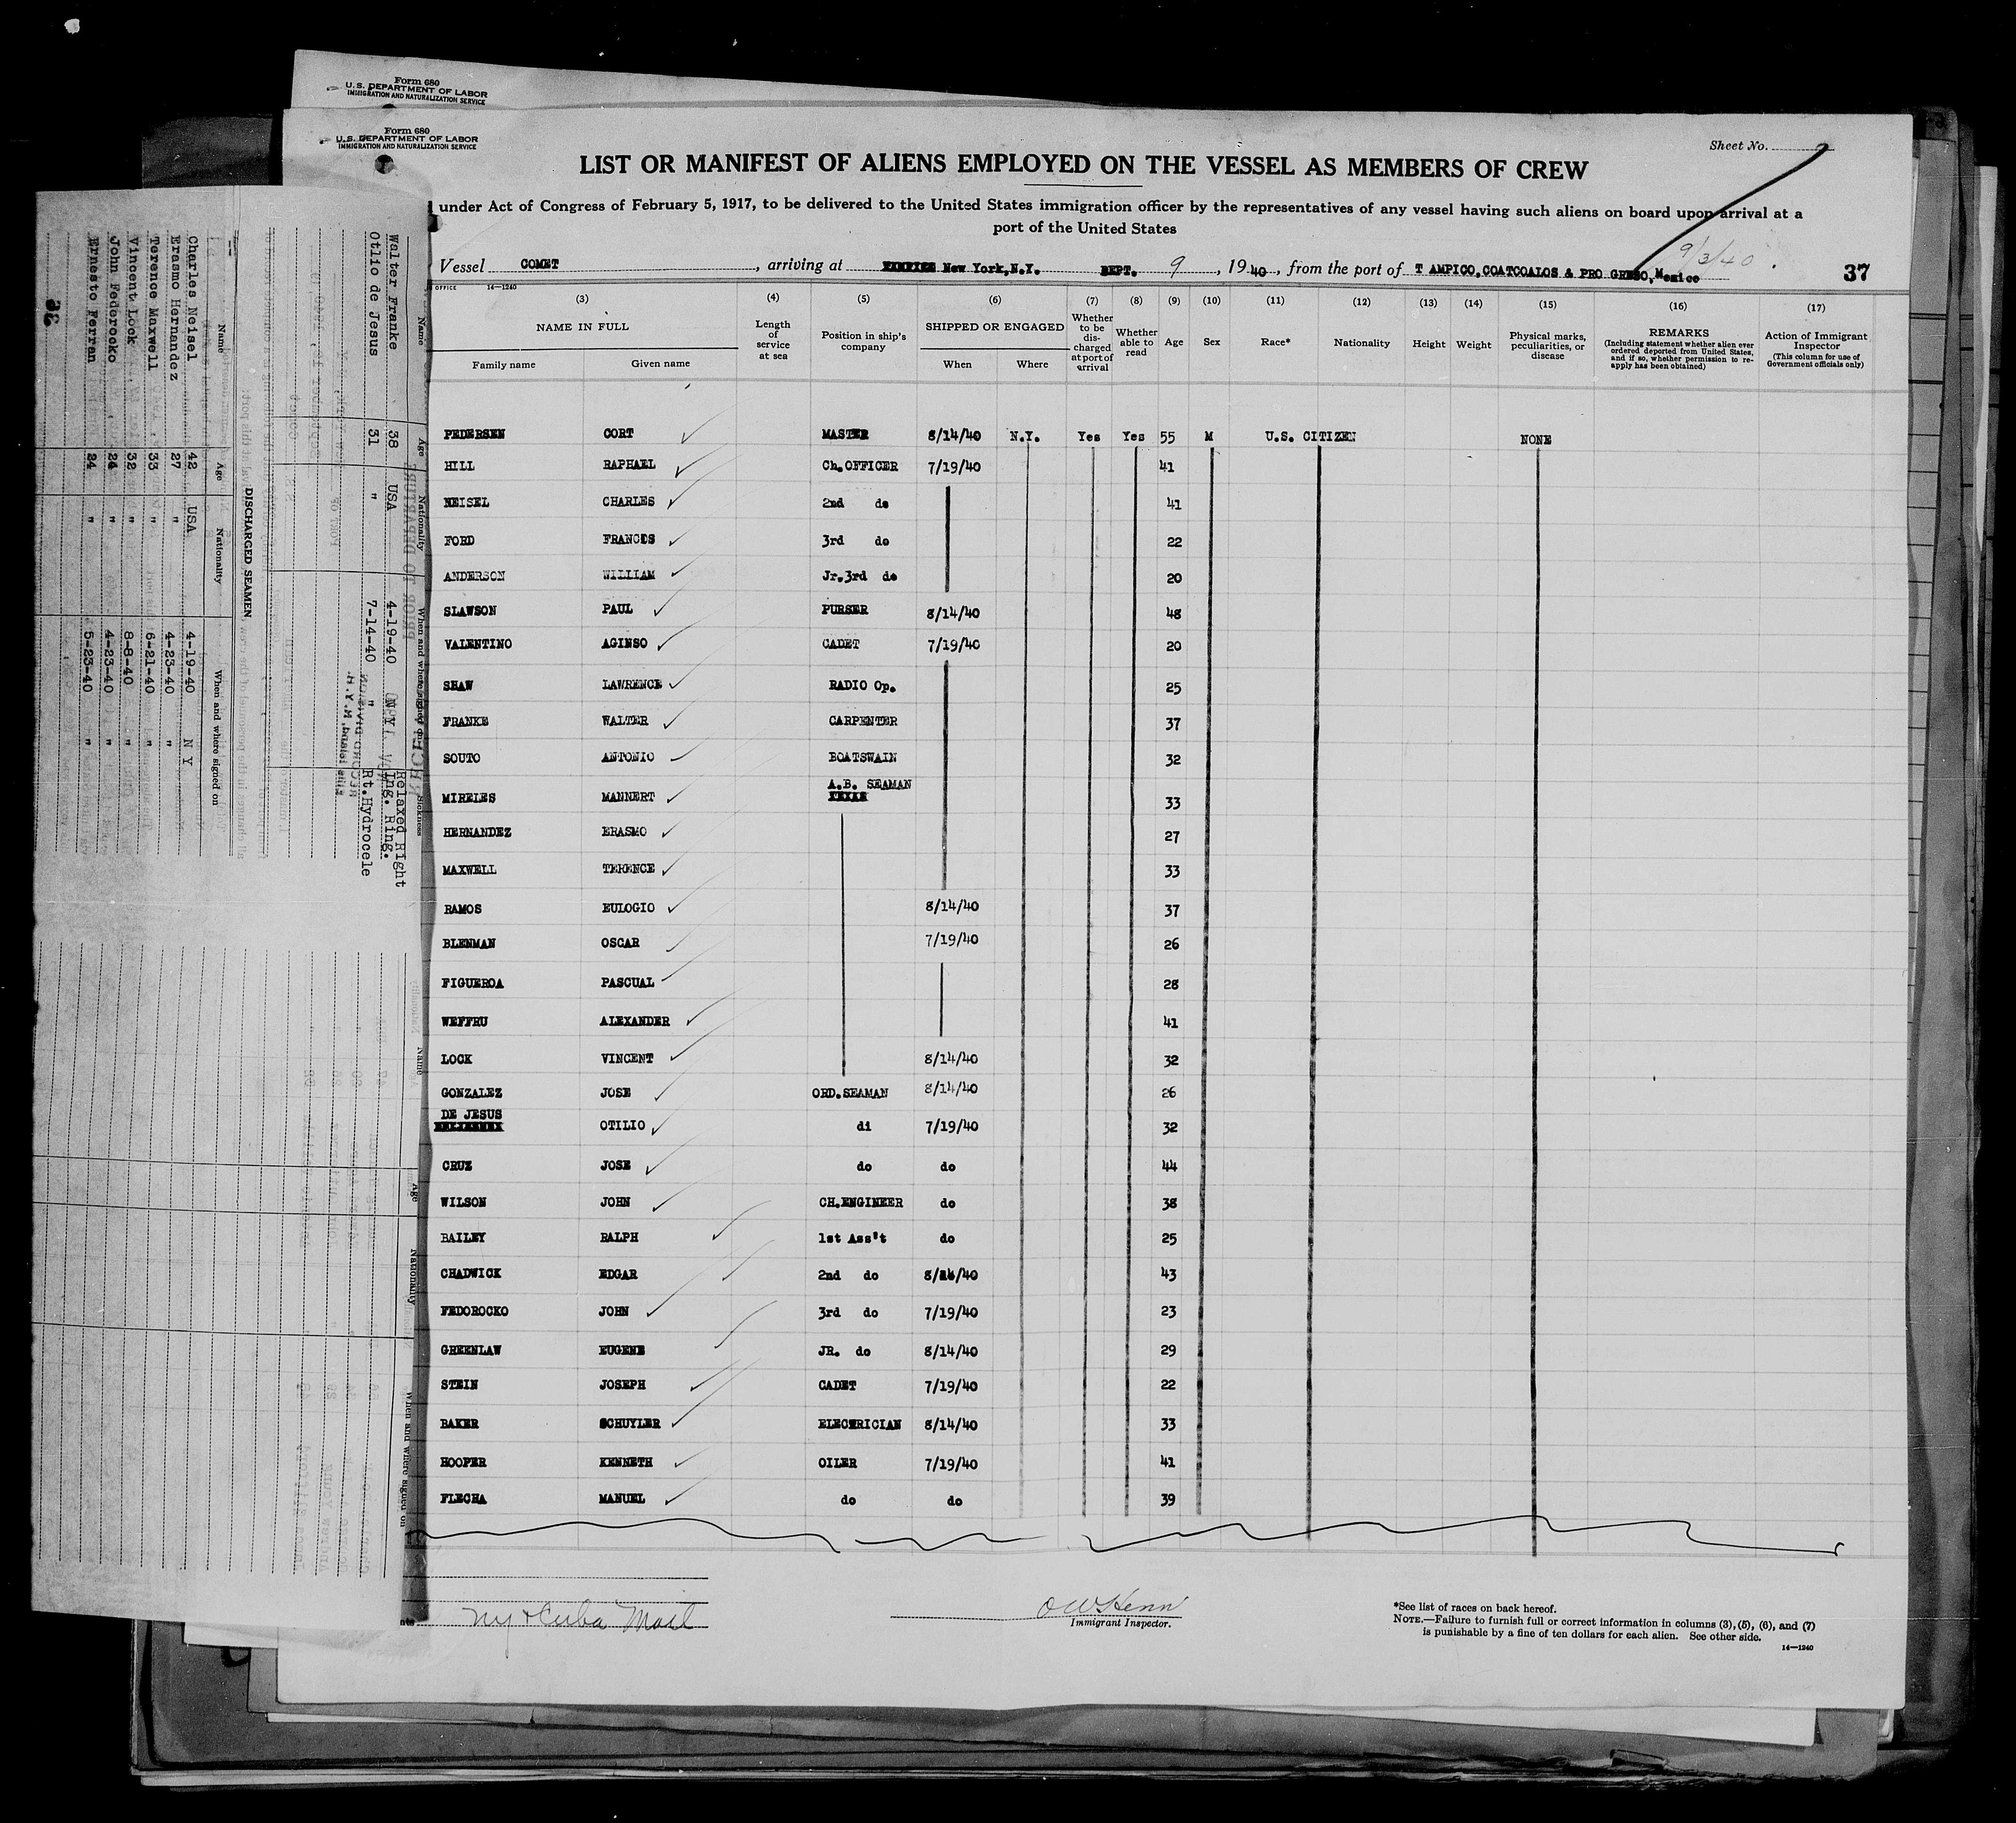 Form 680
U.S. DEPARTMENT OF LABOR
IMMIGRATION AND NATURALIZATION SERVICE
Form 680
U.S. DEPARTMENT OF LABOR
IMMIGRATION AND NATURALIZATION SERVICE
Sheet No.
LIST OR MANIFEST OF ALIENS EMPLOYED ON THE VESSEL AS MEMBERS OF CREW
under Act of Congress of February 5, 1917, to be delivered to the United States immigration officer by the representatives of any vessel having such aliens on board upon arrival at a
port of the United States
9/3/40
Vessel COMET, arriving at New York,N.Y. SEPT. 9, 1940, from the port of T AMPICO,COATCOALOS & PRO GRESO,Mexico
37
OFFICE 14—1240
(3) (4) (5) (6) (7) (8) (9) (10) (11) (12) (13) (14) (15) (16) (17)
NAME IN FULL
Family name Given name
Length of service at sea
Position in ship's company
SHIPPED OR ENGAGED
When Where
Whether to be dis-charged at port of arrival
Whether able to read
Age
Sex
Race*
Nationality
Height
Weight
Physical marks, peculiarities, or disease
REMARKS
(Including statement whether alien ever ordered deported from United States, and if so, whether permission to re-apply has been obtained)
Action of Immigrant Inspector
(This column for use of Government officials only)
PEDERSEN CORT MASTER 8/14/40 N.Y. Yes Yes 55 M U.S. CITIZEN NONE
HILL RAPHAEL Ch.OFFICER 7/19/40 41
NEISEL CHARLES 2nd do 41
FORD FRANCES 3rd do 22
ANDERSON WILLIAM Jr.3rd do 20
SLAWSON PAUL PURSER 8/14/40 48
VALENTINO AGINSO CADET 7/19/40 20
SHAW LAWRENCE RADIO Op. 25
FRANKE WALTER CARPENTER 37
SOUTO ANTONIO BOATSWAIN 32
MIRELES MANNERT A.B. SEAMAN 33
HERNANDEZ ERASMO 27
MAXWELL TERENCE 33
RAMOS EULOGIO 8/14/40 37
BLENMAN OSCAR 7/19/40 26
FIGUEROA PASCUAL 28
WEFFRU ALEXANDER 41
LOCK VINCENT 8/14/40 32
GONZALEZ JOSE ORD.SEAMAN 8/14/40 26
DE JESUS OTILIO di 7/19/40 32
CRUZ JOSE do do 44
WILSON JOHN CH.ENGINEER do 38
BAILEY RALPH 1st Ass't do 25
CHADWICK EDGAR 2nd do 8/14/40 43
FEDOROCKO JOHN 3rd do 7/19/40 23
GREENLAW EUGENE JR. do 8/14/40 29
STEIN JOSEPH CADET 7/19/40 22
BAKER SCHUYLER ELECTRICIAN 8/14/40 33
HOOPER KENNETH OILER 7/19/40 41
FLECHA MANUEL do do 39
NY & Cuba Mail
OW Henn
Immigrant Inspector.
*See list of races on back hereof.
NOTE.—Failure to furnish full or correct information in columns (3), (5), (6), and (7)
is punishable by a fine of ten dollars for each alien. See other side.
14—1240
Name Age Nationality When and where signed on Sickness
Walter Franke 38 USA 4-19-40 N Y Relaxed Right Ing. Ring.
Otlio de Jesus 31 " 7-14-40 " Rt.Hydrocele
DISCHARGED SEAMEN
Name Age Nationality When and where signed on
Charles Neisel 42 USA 4-19-40 N Y
Erasmo Hernandez 27 " 4-23-40 "
Terence Maxwell 33 " 6-21-40 "
Vincent Lock 32 " 8-8-40 "
John Federocko 24 " 4-23-40 "
Ernesto Ferran 24 " 5-23-40 "
Name Age Nationality When and where signed on